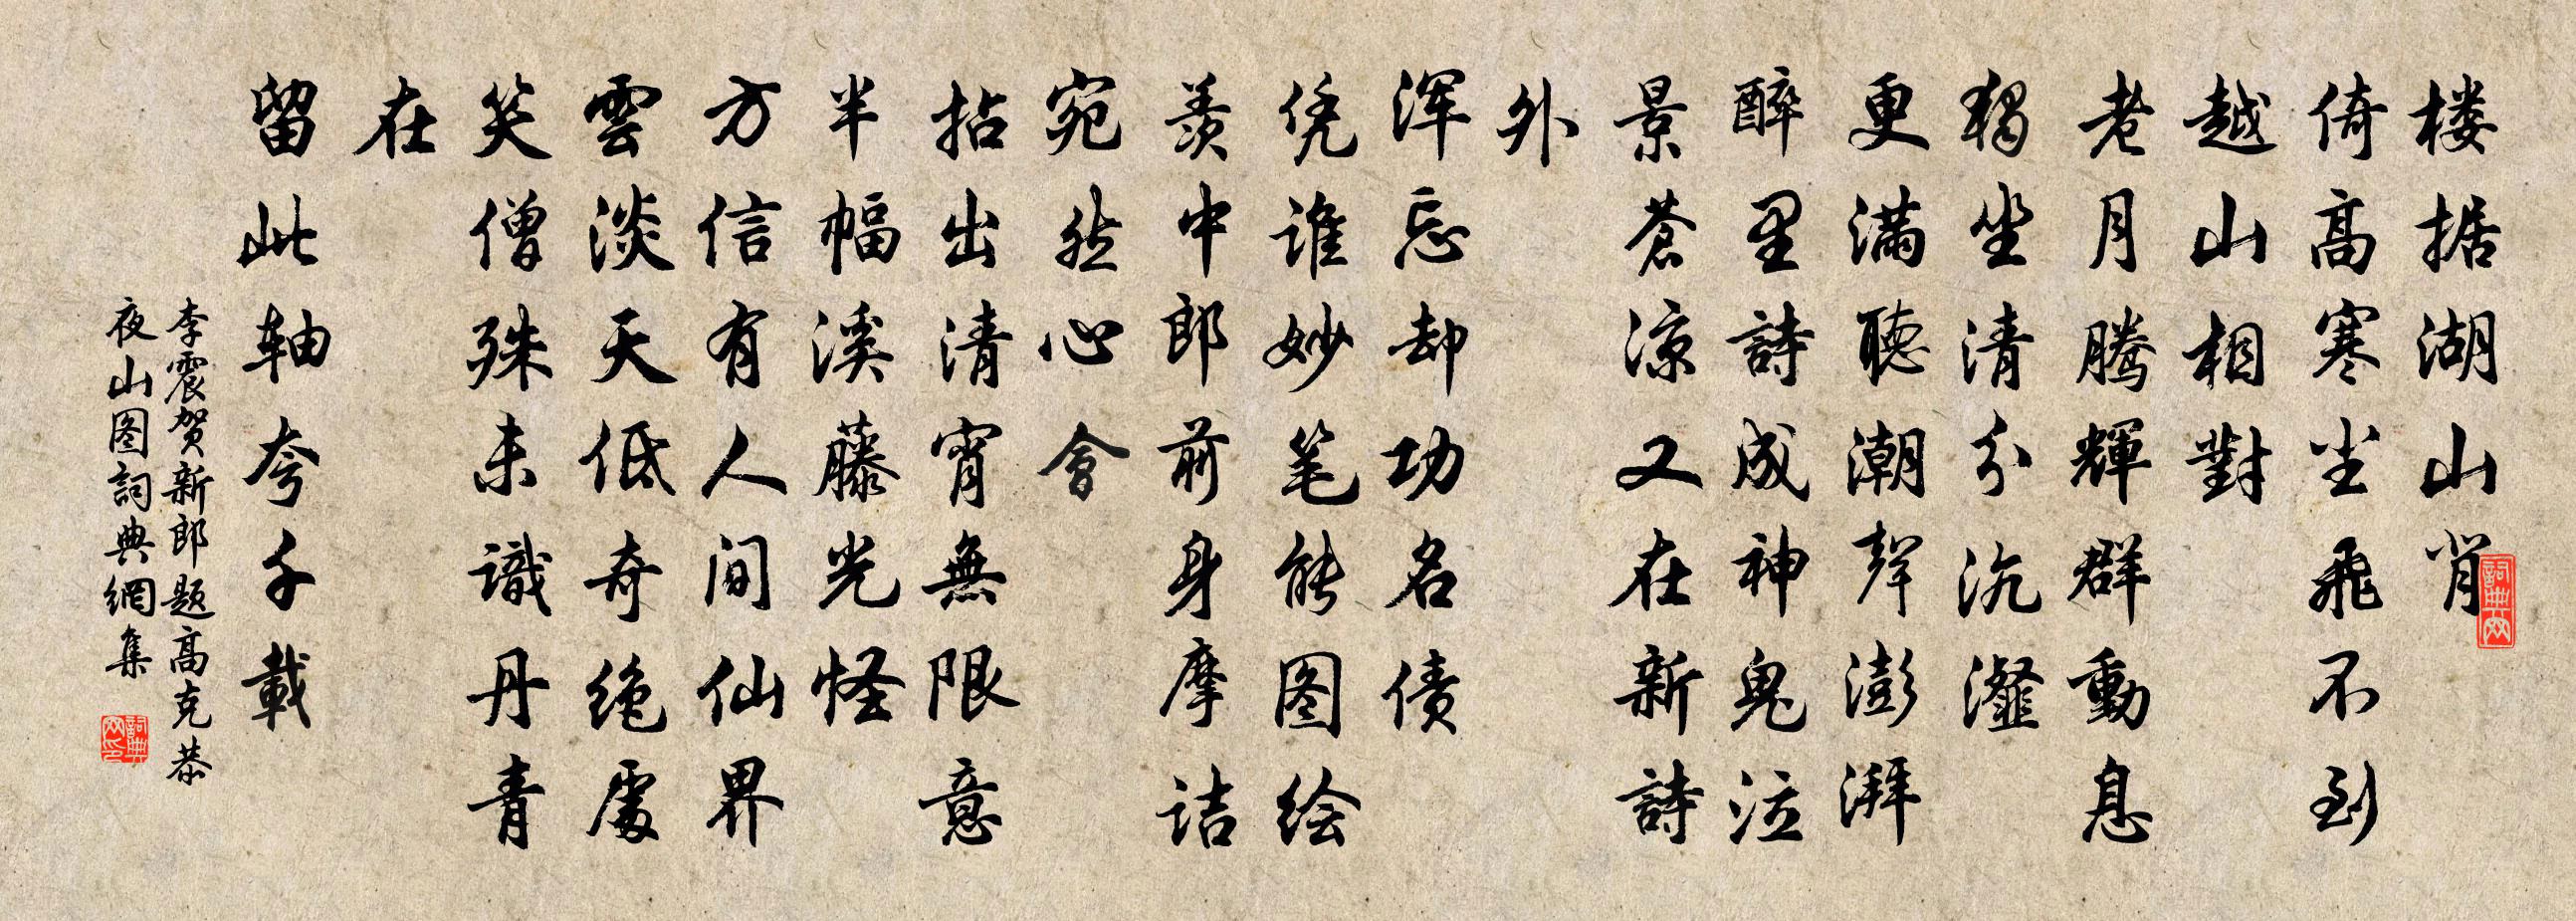 楼据湖山肖
倚高寒尘飛不到
越山相對
老月腾輝群動息
獨坐清分沆瀣
更满聽潮聲澎湃
醉里詩成神鬼泣
景蒼凉又在新詩
外
浑忘却功名债
凭谁妙笔能图绘
羡中郎前身摩诘
宛然心會
拈出清宵無限意
半幅溪藤光怪
方信有人间仙界
雲淡天低奇绝處
笑僧殊未識丹青
在
留此轴夸千載
李震贺新郎题高克恭
夜山图詞典網集
詞典网
詞典网印